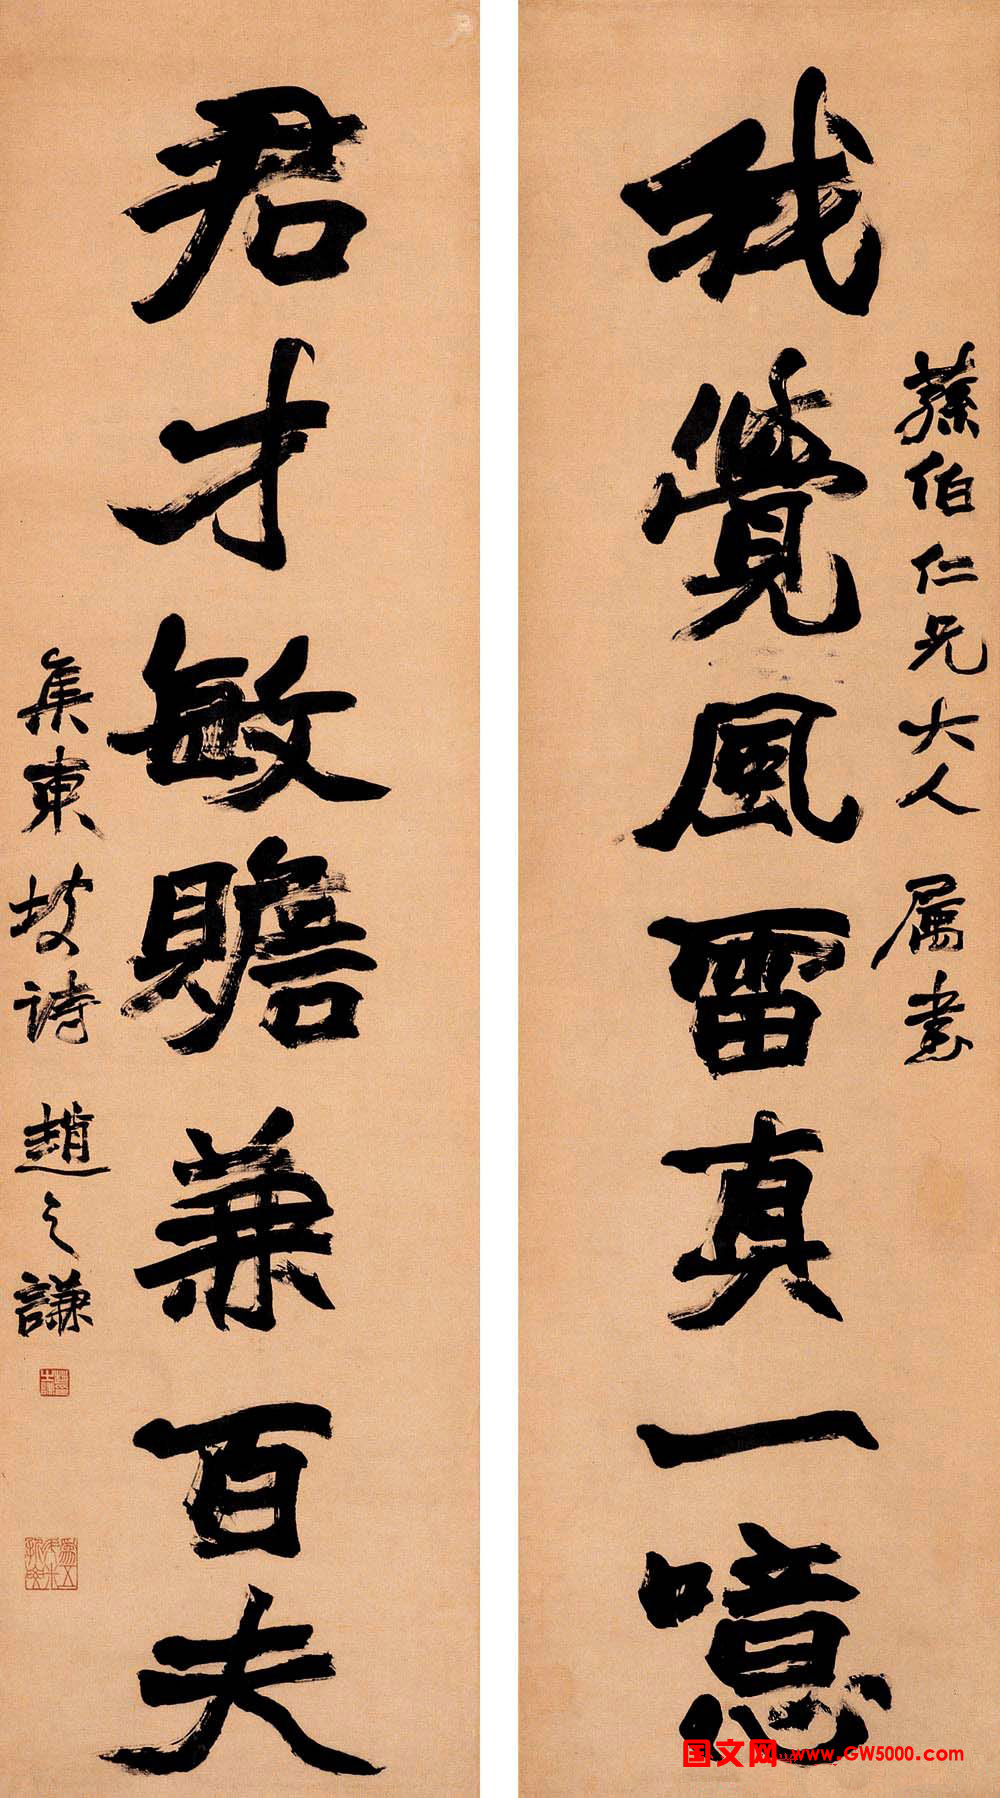 蓀伯仁兄大人 屬書
我覺風雷真一噫
君才敏贍兼百夫
集東坡詩 趙之謙
国文网 www.GW5000.com